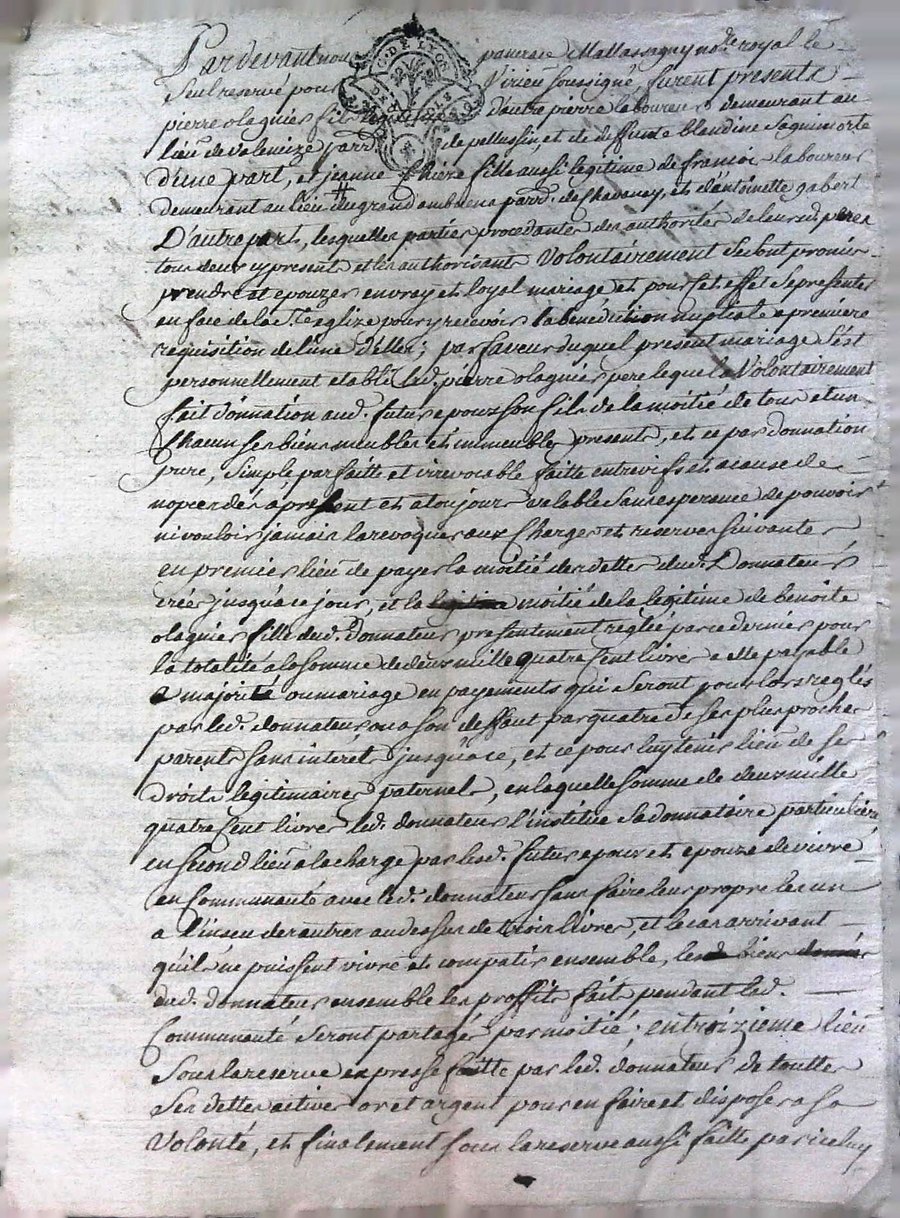 Pardevant nous pancrace Mallassagny no.re royal le
Seul reservé pour Virieu soussigné, furent presents
pierre olagnier fils legitime d'autre pierre laboureur demeurant au
lieu de valencize parr. de pellussin, et de deffunte blandine Saguimorte
D'une part, et jeanne fille aussi legitime de françois laboureur
demeurant au lieu du grand embuen parr. de Chavanay, et d'antoinette gabert
D'autre part, lesquelles parties procedantes des authorités de leursd. peres
tous deux cy present et les authorisants Volontairement se sont promis
prendre et epouzer en vray et loyal mariage et pour cet effet se presenter
en face de la S.te eglize pour y recevoir la bénédiction nuptiale a premiere
requisition de l'une d'elles; par faveur duquel present mariage s'est
personnellement etabli led. pierre olagnier pere lequel a Volontairement
fait donnation aud. futur epoux son fils de la moitié de tous et un
Chacun ses biens meubles et immeubles presents, et ce par donnation
pure, simple, parfaitte et irrevocable faitte entre vifs et a cause de
noces des à present et a toujours valable sans esperance de pouvoir
ni vouloir jamais la revoquer aux Charges et reserves suivantes
en premier lieu de payer la moitié des dettes dud. Donnateur
créés jusqu'a ce jour, et la moitié de la legitime de benoite
olagnier fille dud. donnateur presentement reglée par ce dernier pour
la totalité a la somme de deux mille quatre cent livres a elle payable
a majorité ou mariage en payements qui seront pour lors reglés
par led. donnateur ou a son deffaut par quatre de ses plus proches
parents sans interet jusqu'a ce, et ce pour luy tenir lieu de ses
droits legitimaires paternels, en laquelle somme de deux mille
quatre cent livres led. donnateur l'institue sa donnataire particuliere
en second lieu a la charge par lesd. futurs epoux et epouze de vivre
en Communauté avec led. donnateur sans faire leur propre les uns
a l'insçu des autres au dessus de trois livres, et le cas arrivant
qu'ils ne puissent vivre et compatir ensemble, les biens
dud. donnateur ensemble les proffits faits pendant lad.
Communauté seront partagé par moitié; en troizieme lieu
Sous la reserve expresse faitte par led. donnateur de touttes
Ses dettes actives or et argent pour en faire et disposer a sa
Volonté, et finalement sous la reserve aussi faitte par iceluy